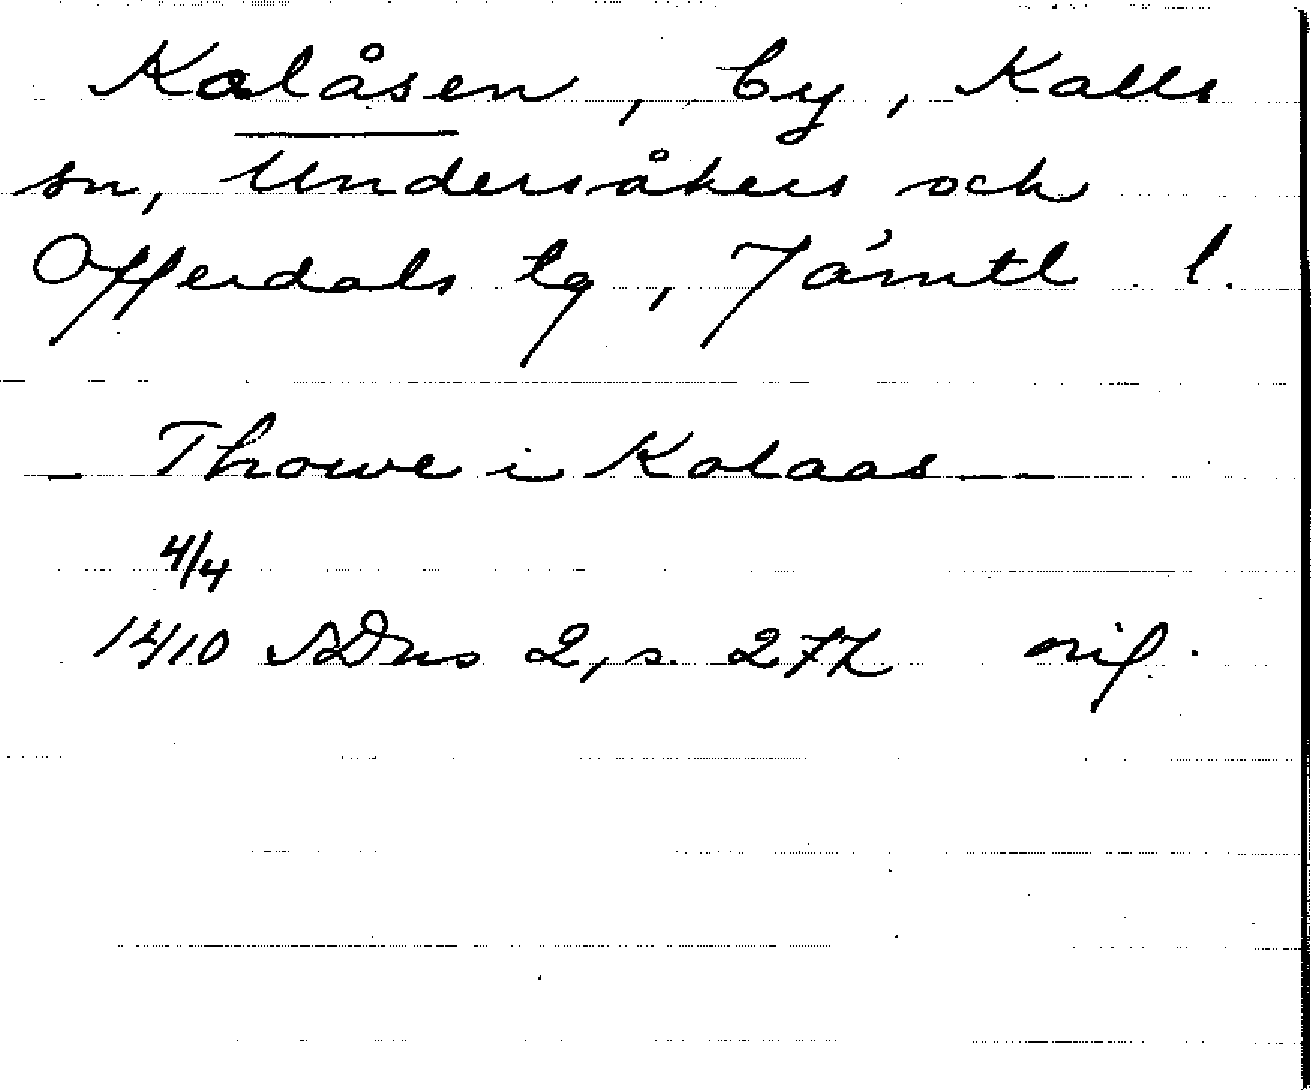 Kolåsen, by, Kalls
sn, Undersåkers och
Offerdals tg, Jämtl. l.
– Thowe i Kolaas –
4/4
1410 SDns 2, s. 272 orig.